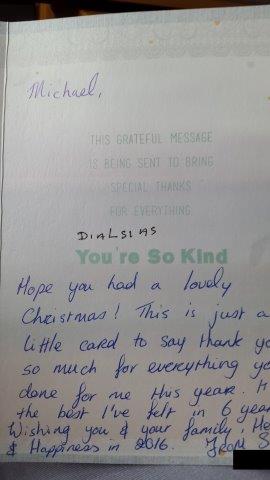 Michael,
THIS GRATEFUL MESSAGE
IS BEING SENT TO BRING
SPECIAL THANKS
FOR EVERYTHING
DIALSIAS
You're So Kind
Hope you had a lovely
Christmas! This is just a
little card to say thank yo
so much for everything yo
done for me this year. It
the best I've felt in 6 year
Wishing you & your family, He
& Happiness in 2016. From S